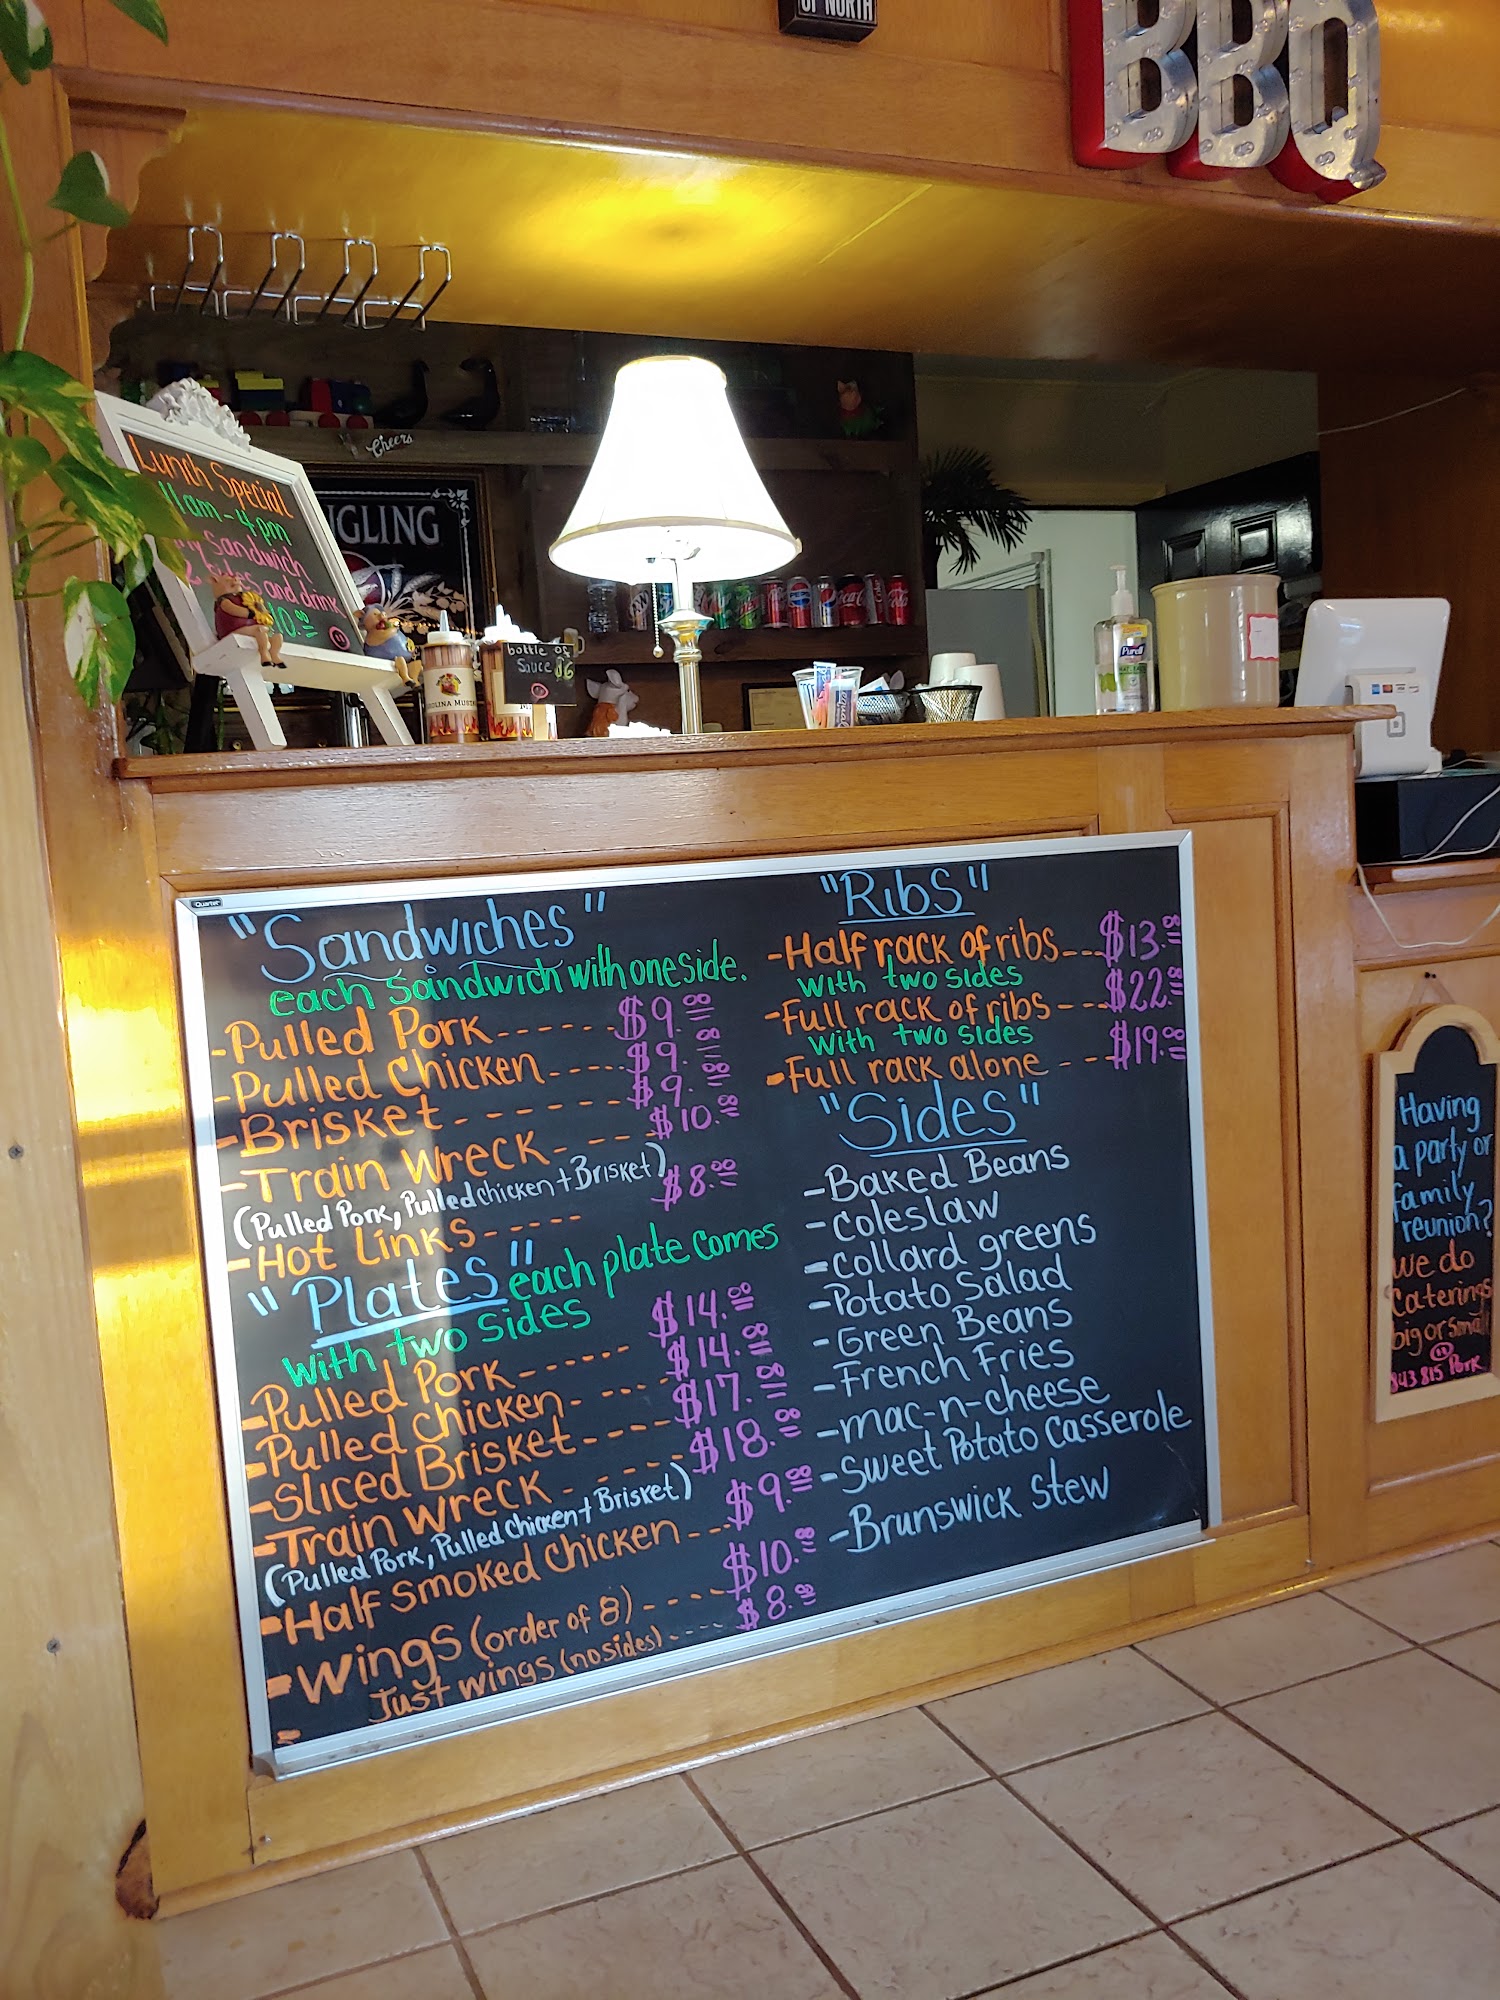 OF NORTH
BBQ
Cheers
Lunch Special
11am - 4pm
Sandwich
2 Sides and drink
10.00
bottle of
Sauce $6
Purell
Quartet
"Sandwiches"
each Sandwich with one side.
-Pulled Pork------$9.00
-Pulled Chicken-----$9.00
-Brisket------$9.00
-Train Wreck----$10.00
(Pulled Pork, Pulled Chicken + Brisket)
-Hot Links-----$8.00
"Plates" each plate comes
with two sides
-Pulled Pork------$14.00
-Pulled chicken----$14.00
-Sliced Brisket----$17.00
-Train Wreck-----$18.00
(Pulled Pork, Pulled Chicken + Brisket)
-Half Smoked Chicken---$9.00
-Wings (order of 8)----$10.00
Just wings (no sides)----$8.00
"Ribs"
-Half rack of ribs---$13.00
with two sides
-Full rack of ribs---$22.00
with two sides
-Full rack alone---$19.00
"Sides"
-Baked Beans
-Coleslaw
-Collard greens
-Potato Salad
-Green Beans
-French Fries
-mac-n-cheese
-Sweet Potato Casserole
-Brunswick Stew
Having
a party or
family
reunion?
we do
Caterings
big or small
843 815 Pork